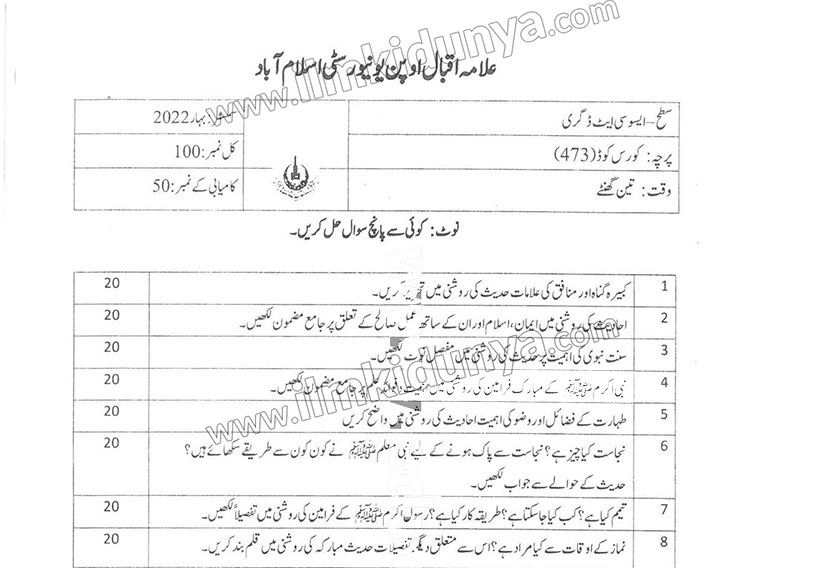 علامہ اقبال اوپن یونیورسٹی اسلام آباد
سطح – ایسوسی ایٹ ڈگری
سمسٹر: بہار 2022
پرچہ: کورس کوڈ (473)
کل نمبر: 100
وقت: تین گھنٹے
کامیابی کے نمبر: 50
نوٹ: کوئی سے پانچ سوال حل کریں۔
1 کبیرہ گناہ اور منافق کی علامات حدیث کی روشنی میں تحریر کریں۔ 20
2 احادیث کی روشنی میں ایمان، اسلام اور ان کے ساتھ عمل صالح کے تعلق پر جامع مضمون لکھیں۔ 20
3 سنت نبوی کی اہمیت پر حدیث کی روشنی میں مفصل نوٹ لکھیں۔ 20
4 نبی اکرم ﷺ کے مبارک فرامین کی روشنی میں اہمیت و فوائد علم پر جامع مضمون لکھیں۔ 20
5 طہارت کے فضائل اور وضو کی اہمیت احادیث کی روشنی میں واضح کریں 20
6 نجاست کیا چیز ہے؟ نجاست سے پاک ہونے کے لیے نبی معلم ﷺ نے کون کون سے طریقے سکھائے ہیں؟ 20
حدیث کے حوالے سے جواب لکھیں۔
7 تیمم کیا ہے؟ کب کیا جاسکتا ہے؟ طریقہ کار کیا ہے؟ رسول اکرم ﷺ کے فرامین کی روشنی میں تفصیلاً لکھیں۔ 20
8 نماز کے اوقات سے کیا مراد ہے؟ اس سے متعلق دیگر تفصیلات حدیث مبارکہ کی روشنی میں قلم بند کریں۔ 20
www.ilmkidunya.com
www.ilmkidunya.com
www.ilmkidunya.com